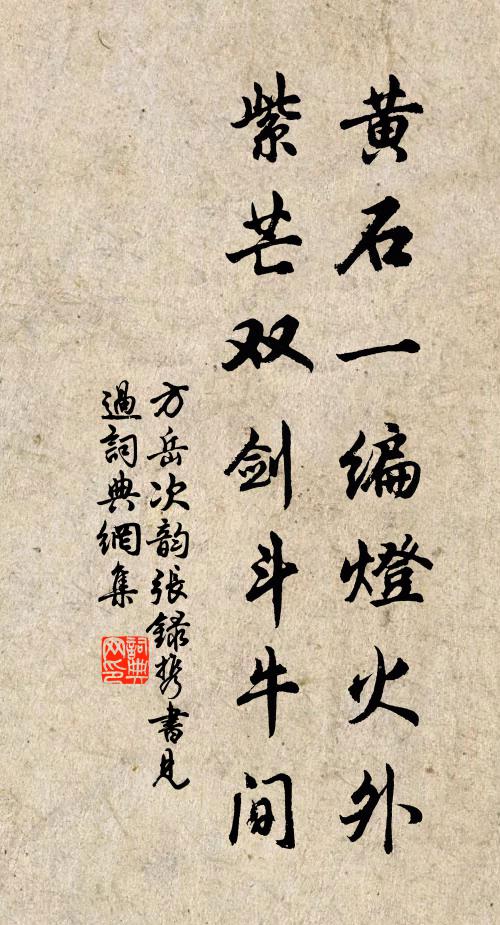 黄石一编燈火外
紫芒双劍斗牛间
方岳次韵張録携書見
過詞典網集
詞典网印